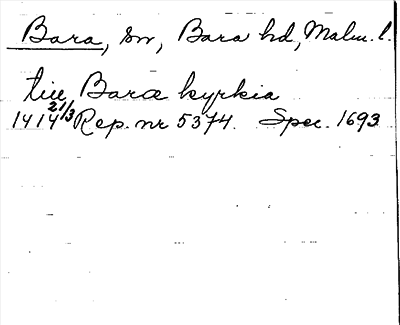 Bara, sn, Bara hd, Malm. l.
till Baræ kyrkia
1414 21/3 Rep. nr 5374. Spec. 1693